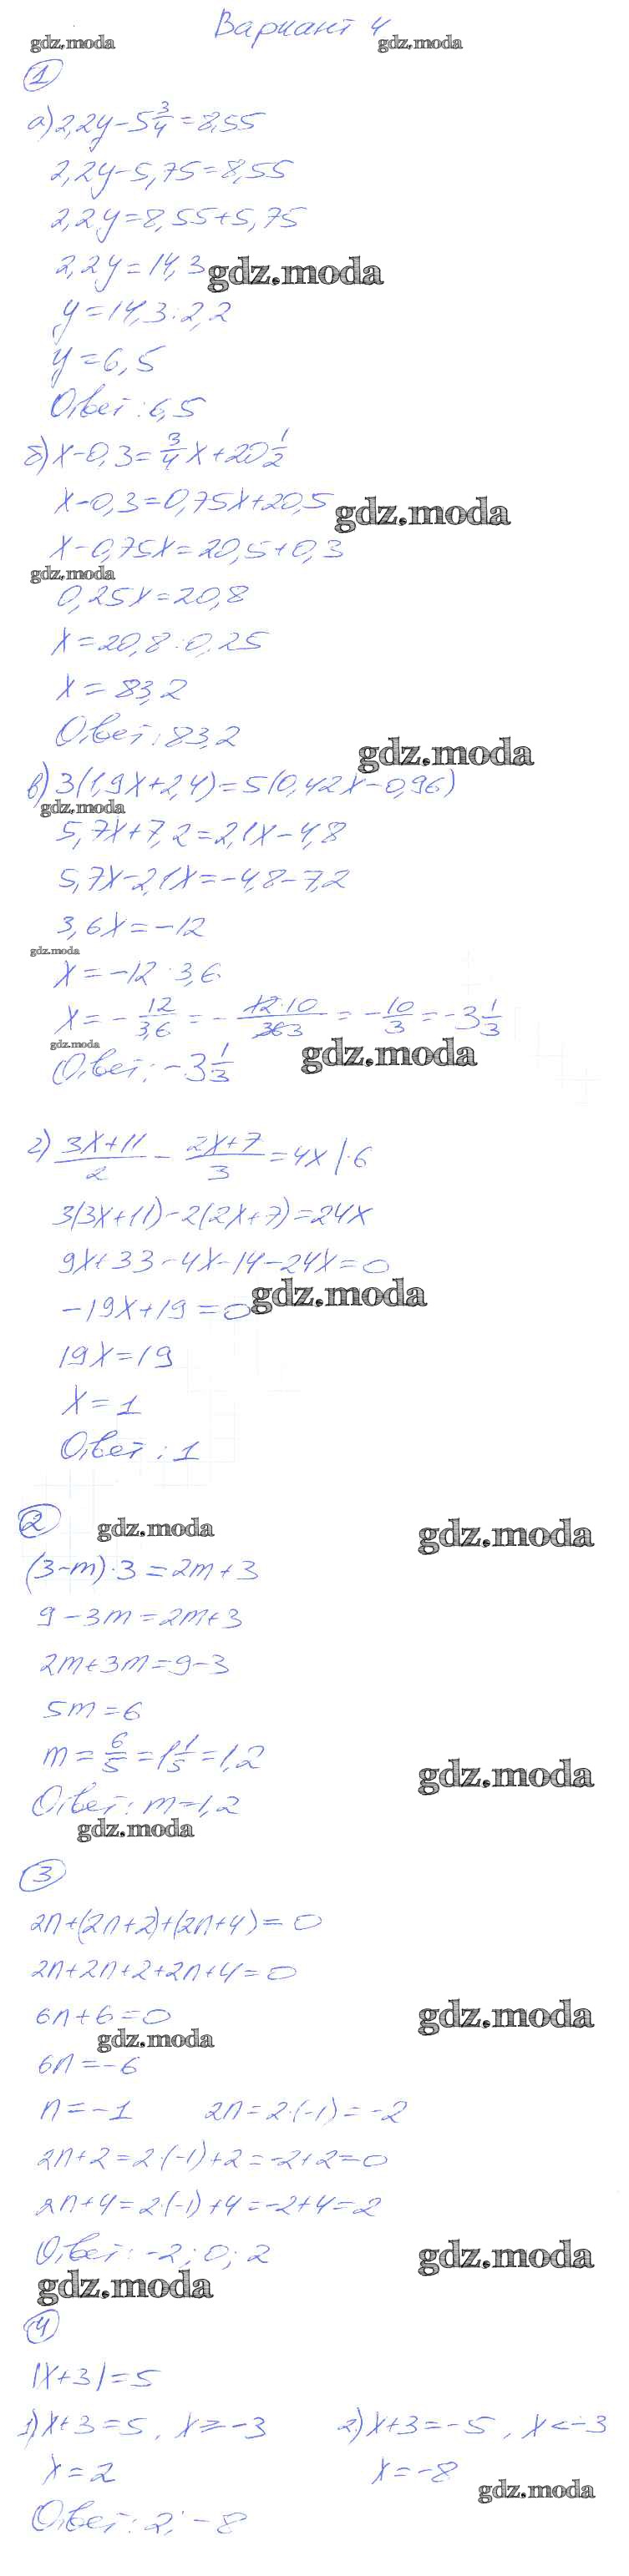 Вариант 4
gdz.moda gdz.moda
1
а) 2,2y-5 3/4=8,55
2,2y-5,75=8,55
2,2y=8,55+5,75
2,2y=14,3 gdz.moda
y=14,3:2,2
y=6,5
Ответ: 6,5
б) x-0,3=3/4x+20 1/2
x-0,3=0,75x+20,5 gdz.moda
x-0,75x=20,5+0,3
gdz.moda
0,25x=20,8
x=20,8:0,25
x=83,2
Ответ: 83,2 gdz.moda
в) 3(1,9x+2,4)=5(0,42x-0,96)
gdz.moda
5,7x+7,2=2,1x-4,8
5,7x-2,1x=-4,8-7,2
3,6x=-12
gdz.moda
x=-12:3,6
x=-12/3,6=-12·10/363=-10/3=-3 1/3
gdz.moda gdz.moda
Ответ: -3 1/3
г) (3x+11)/2-(2x+7)/3=4x|·6
3(3x+11)-2(2x+7)=24x
9x+33-4x-14-24x=0
-19x+19=0 gdz.moda
19x=19
x=1
Ответ: 1
2 gdz.moda gdz.moda
(3-m)·3=2m+3
9-3m=2m+3
2m+3m=9-3
5m=6
m=6/5=1 1/5=1,2 gdz.moda
Ответ: m=1,2
gdz.moda
3
2n+(2n+2)+(2n+4)=0
2n+2n+2+2n+4=0
6n+6=0 gdz.moda
gdz.moda
6n=-6
n=-1 2n=2·(-1)=-2
2n+2=2·(-1)+2=-2+2=0
2n+4=2·(-1)+4=-2+4=2
Ответ: -2; 0; 2 gdz.moda
gdz.moda
4
|x+3|=5
1) x+3=5, x≥-3 2) x+3=-5, x<-3
x=2 x=-8
gdz.moda
Ответ: 2; -8